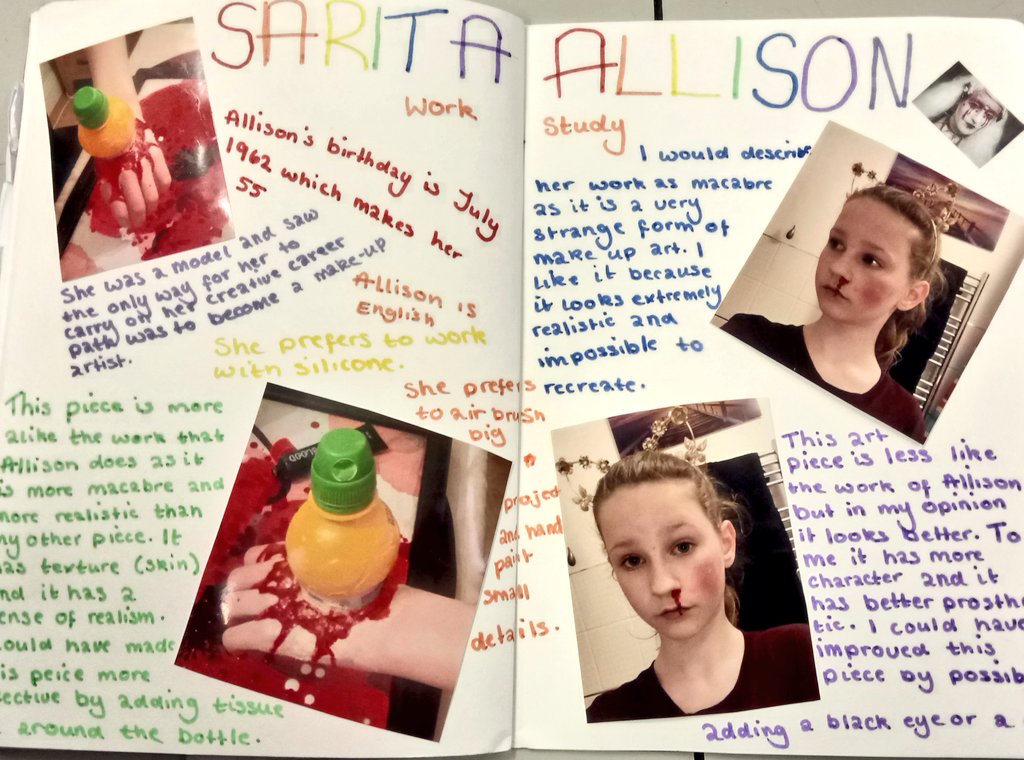 SARITA ALLISON
Work
Allison's birthday is July
1962 which makes her
55
She was a model and saw
the only way for her to
carry on her creative career
path was to become a make-up
artist.
Allison is
English
She prefers to work
with silicone.
She prefers
to air brush
big
project
and hand
paint
small
details.
This piece is more
alike the work that
Allison does as it
is more macabre and
more realistic than
my other piece. It
has texture (skin)
and it has a
sense of realism.
could have made
is peice more
ective by adding tissue
around the bottle.
BLOOD
Study
I would describe
her work as macabre
as it is a very
strange form of
make up art. I
like it because
it looks extremely
realistic and
impossible to
recreate.
This art
piece is less like
the work of Allison
but in my opinion
it looks better. To
me it has more
character and it
has better prosthe
tic. I could have
improved this
piece by possib
adding a black eye or a